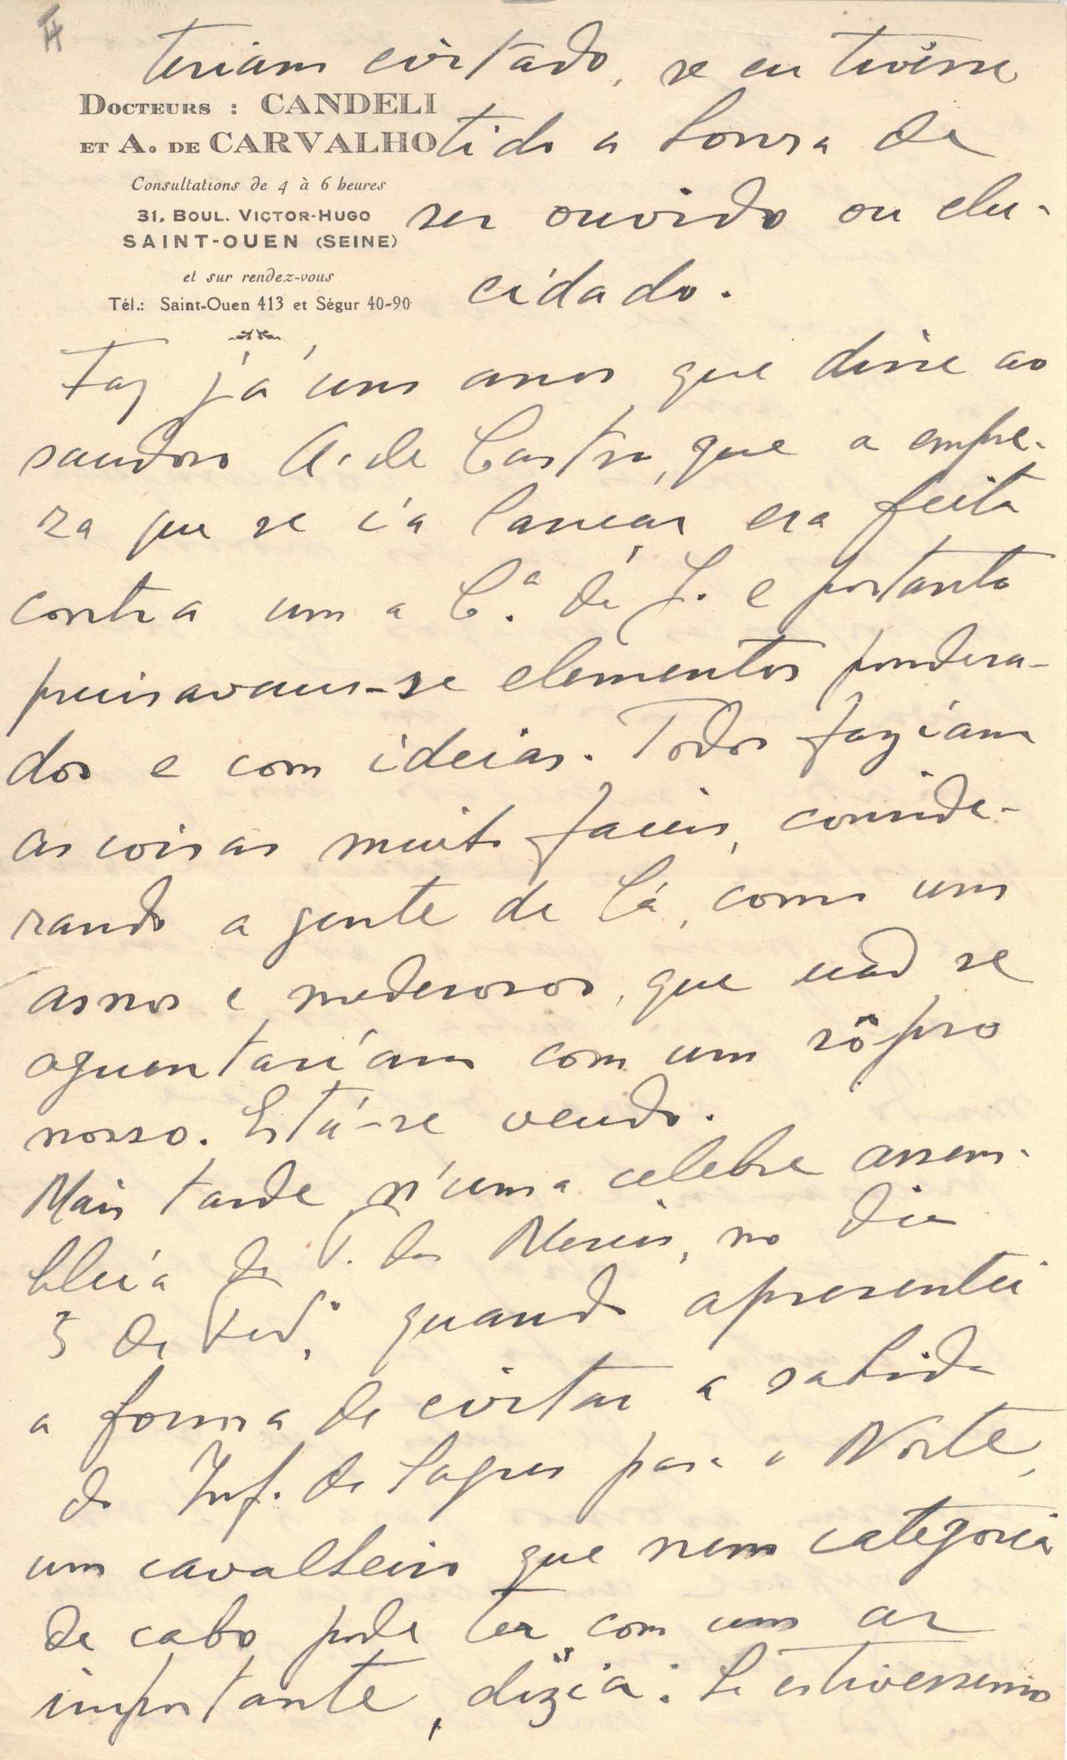 teriam evitado, se eu tivésse
DOCTEURS : CANDELI
ET A. DE CARVALHO
Consultations de 4 à 6 heures
31, BOUL. VICTOR-HUGO
SAINT-OUEN (SEINE)
et sur rendez-vous
Tél.: Saint-Ouen 413 et Ségur 40-90
tido a honra de
ser ouvido ou elu-
cidado.
Faz já uns anos que disse ao
saudoso A. de Castro, que a empre-
za que se ia lançar era feita
contra uma C.ª de J. e portanto
precisavam-se elementos pondera-
dos e com ideias. Todos faziam
as coisas muito faceis, conside-
rando a gente de lá, como uns
asnos e mederosos, que não se
aguentariam com um sôpro
nosso. Está-se vendo.
Mais tarde n'uma celebre assem-
bleia de T. das Mercês, no dia
3 de Fev.º, quando apresentei
a forma de evitar a sahida
do Inf. de Sagres para o Norte,
um cavalheiro que nem categoria
de cabo pode ter com um ar
importante, dizia: Se estivessemos